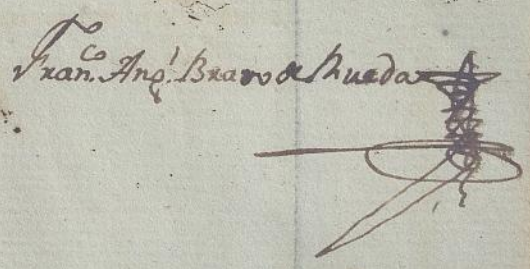 Fran.co Ang.l Bravo de Rueda